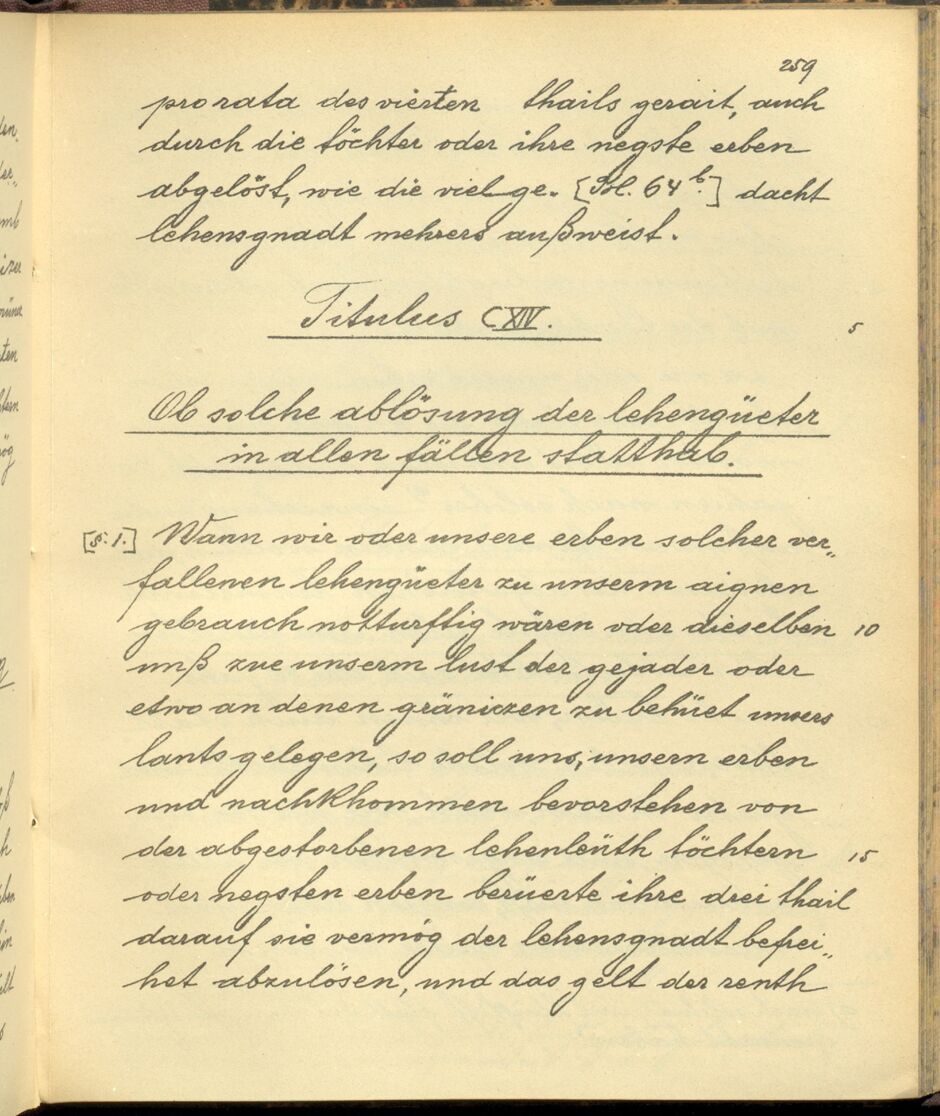 259
pro rata des vierten thails gerait, auch
durch die töchter oder ihre negste erben
abgelöst, wie die viel ge- [Fol. 64 b.] dacht
lehensgnadt mehrers außweist.
Titulus CXIV. 5
Ob solche ablösung der lehengüeter
in allen fällen statthab.
[§. 1.] Wann wir oder unsere erben solcher ver„
fallenen lehengüeter zu unserm aignen
gebrauch notturftig wären oder dieselben 10
unß zue unserm lust der gejader oder
etwo an denen gräniczen zu behüet unsers
lants gelegen, so soll uns, unsern erben
und nachkhommen bevorstehen von
der abgestorbenen lehenleüth töchtern 15
oder negsten erben berüerte ihre drei thail
darauf sie vermög der lehensgnadt befrei„
het abzulösen, und das gelt der renth